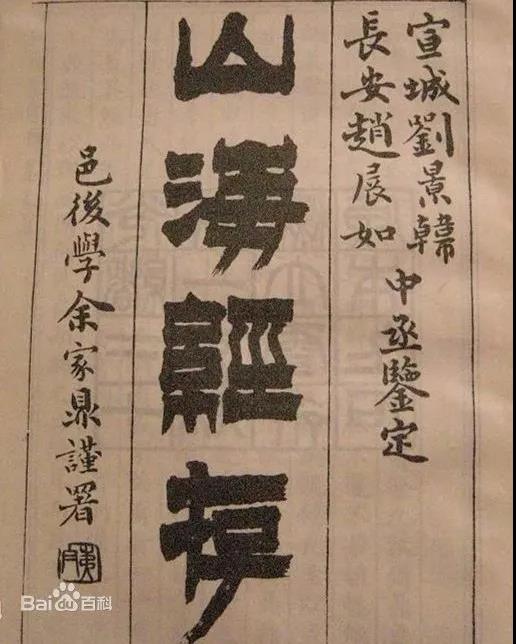 宣城劉景韓
長安趙展如
中丞鑒定
山海經存
邑後學余家鼎謹署
Bai百科